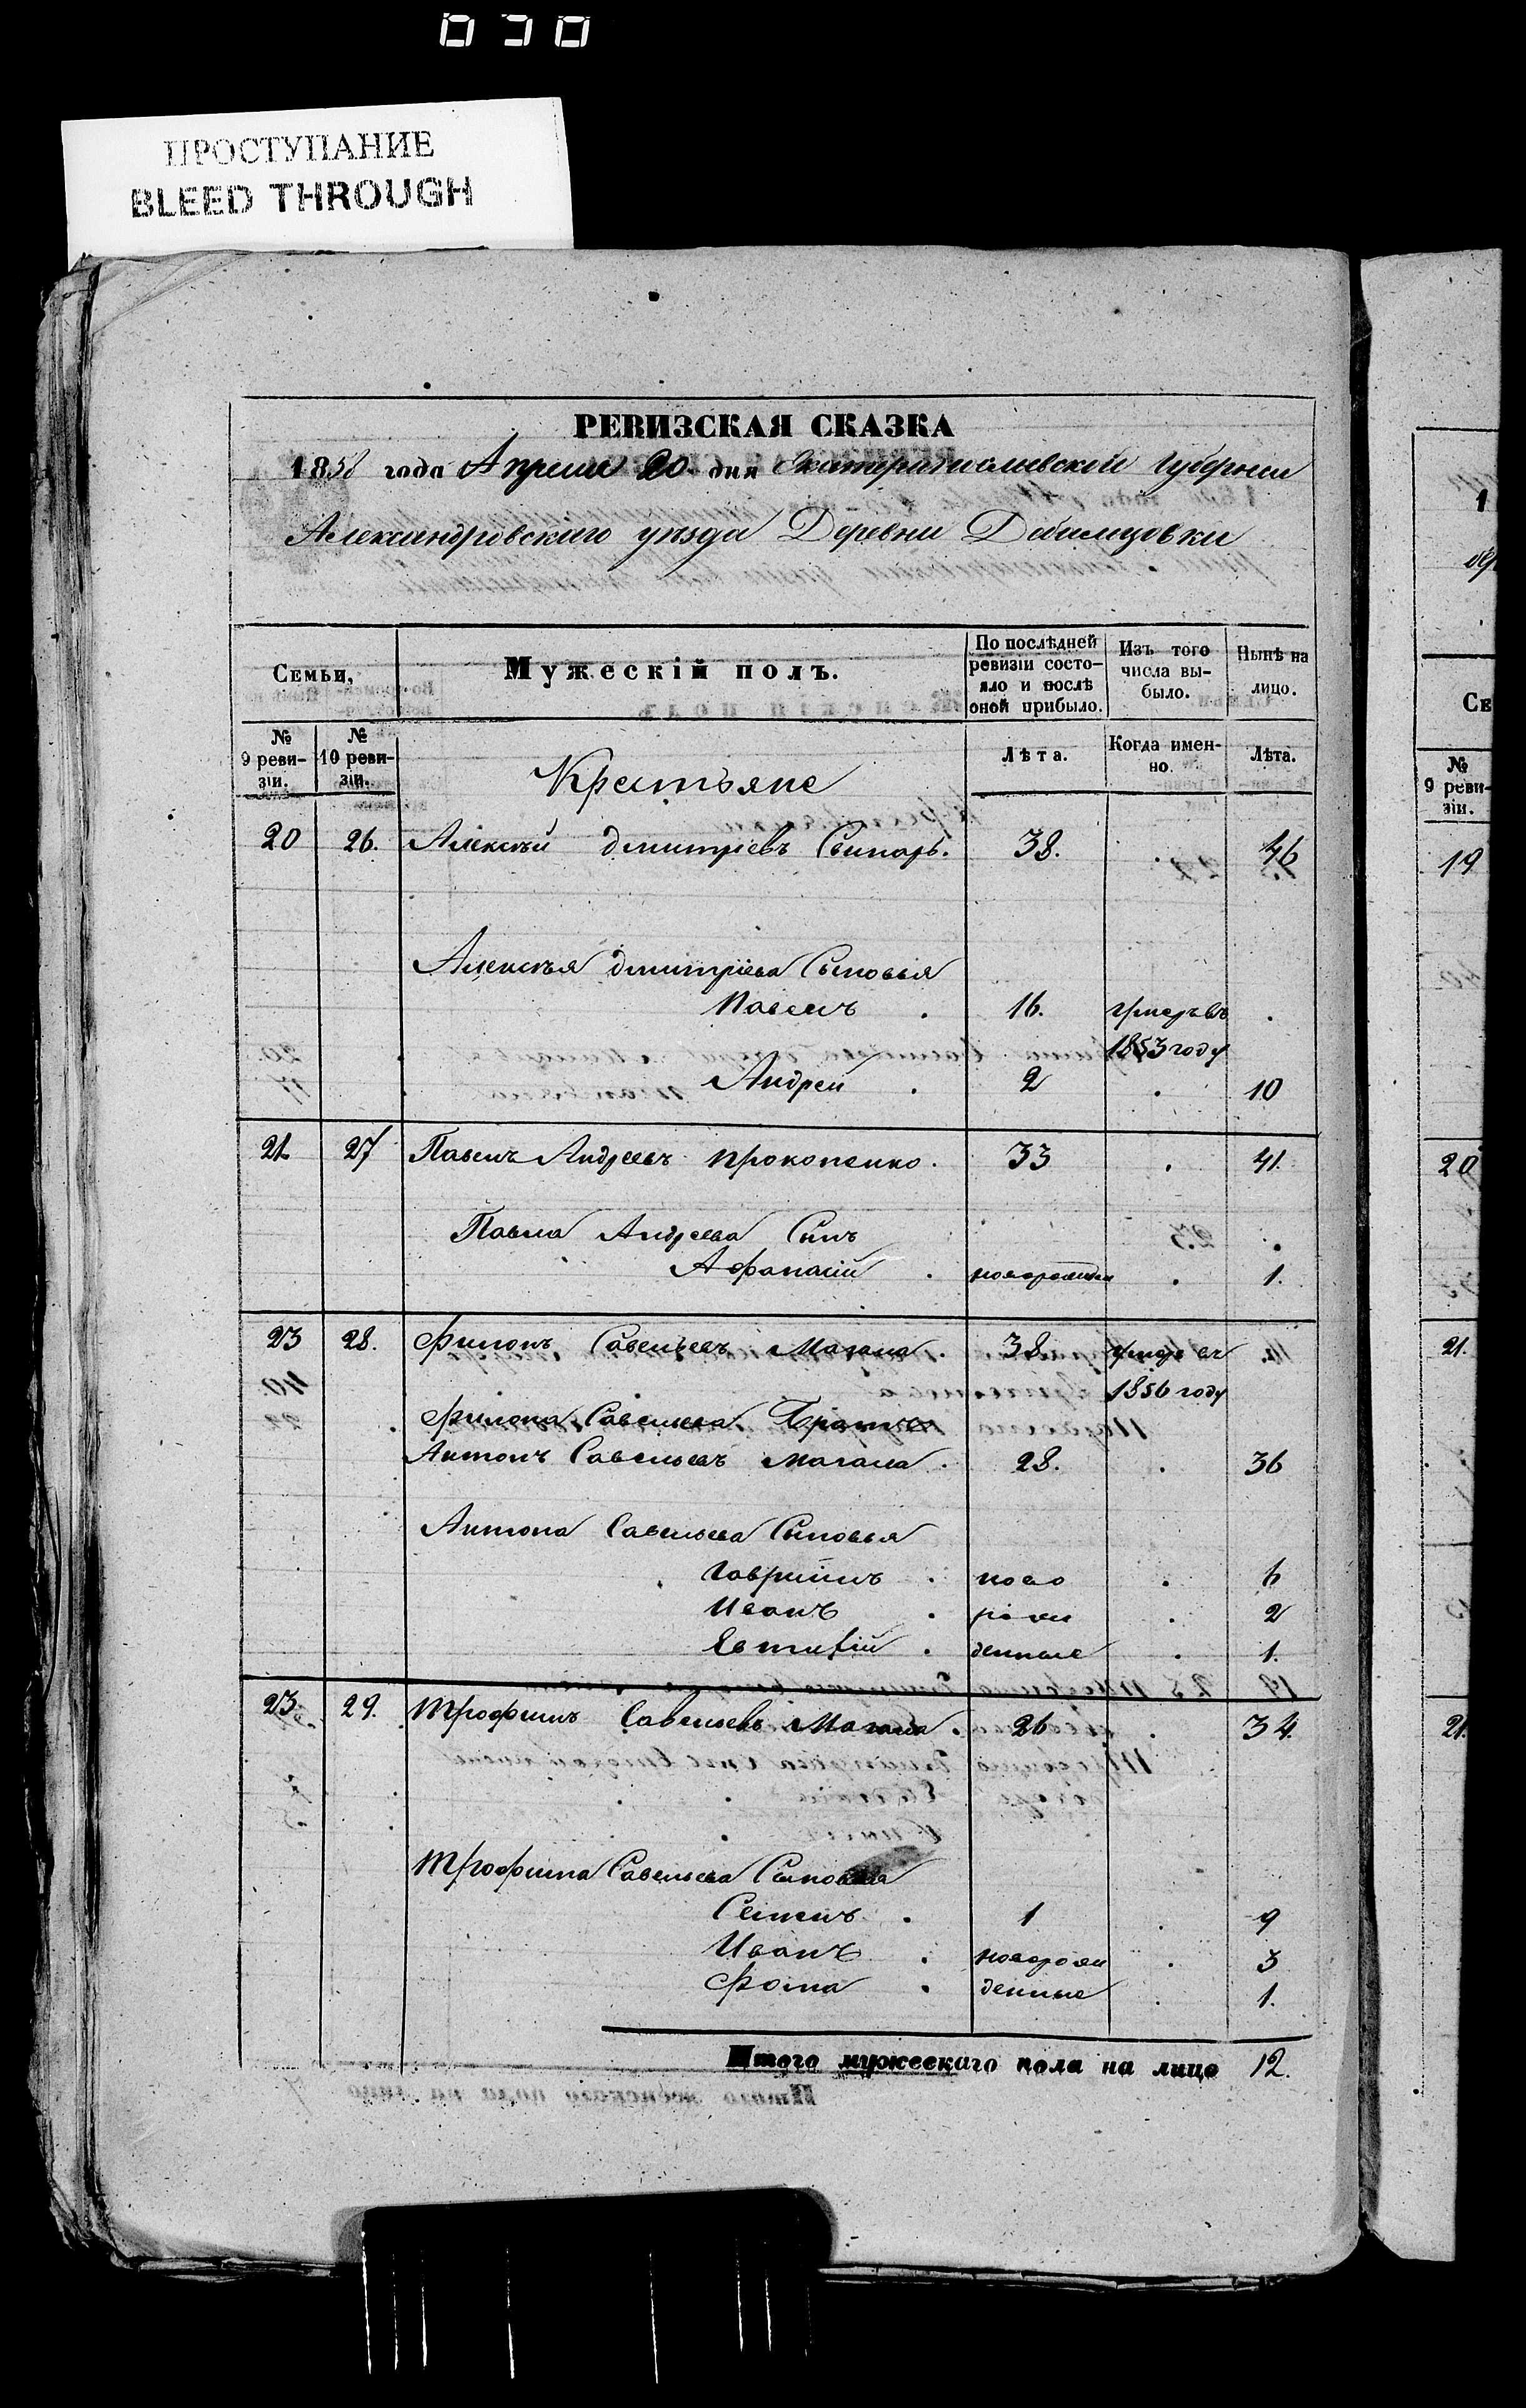 030
ПРОСТУПАНИЕ
BLEED THROUGH
РЕВИЗСКАЯ СКАЗКА
1858 года Апреля 20 дня Екатеринославской Губернии
Александровского уезда Деревни
Семьи,
Мужескій полъ.
По послѣдней ревизіи состояло и послѣ оной прибыло.
Изъ того числа выбыло.
Нынѣ на лицо.
№ 9 ревизіи.
№ 10 ревизіи.
Крестьяне
Лѣта.
Когда именно.
Лѣта.
20 26. Алексѣй Дмитріевъ Свинарь. 38. 46
Алексѣя Дмитріева Сыновья
Павелъ . 16. умеръ въ .
1853 году
Андрей . 2 . 10
21 27 Павелъ Андреевъ Прокопенко. 33 . 41.
Павла Андреева Сынъ
Афанасій . новорожден . 1.
23 28. Филонъ Савельевъ Магала. 38. умеръ въ
1856 году
Филона Савельева Братъ
Антонъ Савельевъ Магала. 28. . 36
Антона Савельева Сыновья
Гаврiилъ . ново . 6
Иванъ . рож . 2
Евтифiй . денные . 1.
23 29. Трофимъ Савельевъ Магала. 26 34.
Трофима Савельева Сыновья
Семенъ . 1 . 9
Иванъ . новорож . 3
Фома . денные . 1.
Итого мужескаго пола на лицо 12.
1
Се
№ 9 ревизіи.
19
20
21.
21.